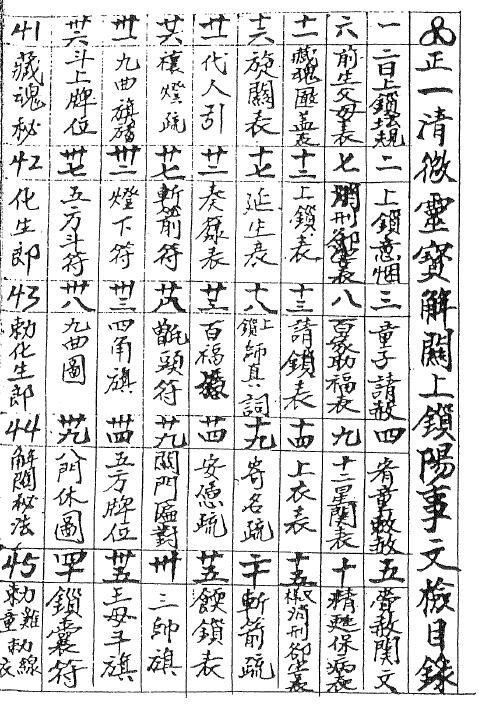 正一清微靈寶解關上鎖陽事文檢目錄
一 二日上鎖埈規
二 上鎖意烟
三 童子請赦
四 宥童赦
五 賫赦関文
六 前生父母表
七 消刑卻害表
八 百家助福表
九 十二星関表
十 精延保病表
十一 藏魂匾盖表
十二 上鎖表
十三 請鎖表
十四 上衣表
十五 消刑卻害表
十六 旋關表
十七 延生表
十八 上鎖師真詞
十九 寄名疏
二十 斬煞疏
廿一 代人引
廿二 奏籙表
廿三 百福
廿四 安慮疏
廿五 餪鎖表
廿六 禳燈疏
廿七 斬箭符
廿八 氈頭符
廿九 關門匾對
卅 三帥旗
卅一 九曲旗
卅二 燈下符
卅三 四角旗
卅四 五方牌位
卅五 王母斗旗
卅六 斗上牌位
卅七 五方斗符
卅八 九曲圖
卅九 八門休圖
四十 鎖囊符
41 藏魂秘
42 化生郎
43 勅化生郎
44 解関秘法
45 勅雞勅線童衣